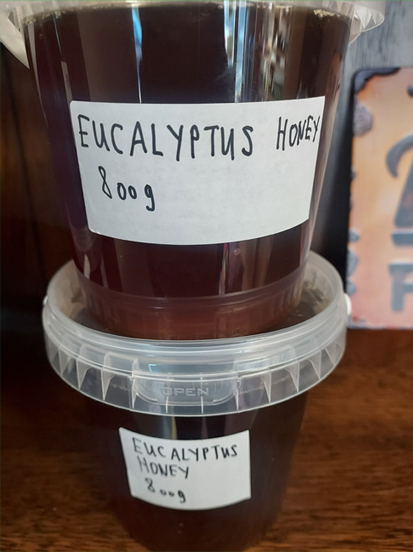 EUCALYPTUS HONEY
800g
OPEN
EUCALYPTUS
HONEY
800g